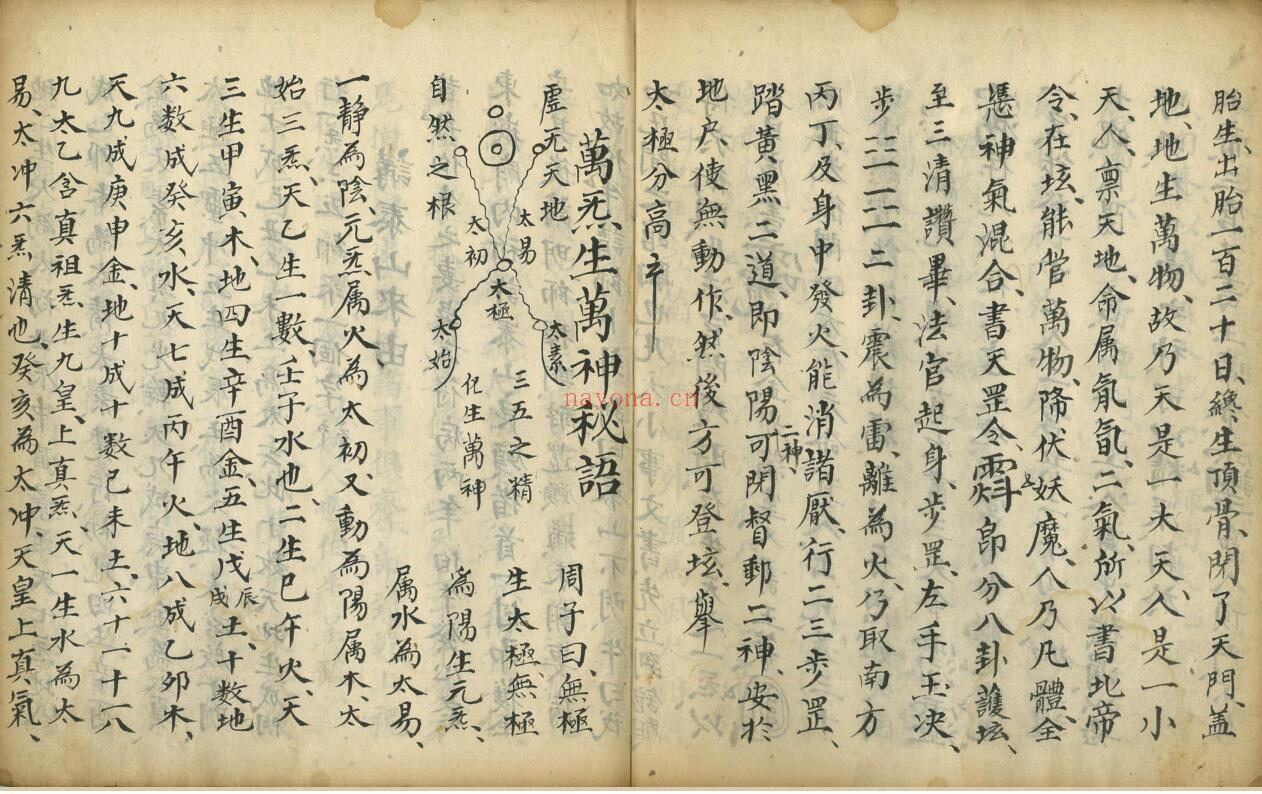 胎生、出胎一百二十日、終、生頂骨、閉了天門、盖
地、地生萬物、故乃天是一大天、人是一小
天、人、禀天地、命属氤氲、二氣、所以書北帝
令、在坛、能管萬物、降伏妖魔、人乃凡體、全
凴神氣混合、書天罡令、分八卦護坛、
至三清讚畢、法官起身、步罡、左手玉决、
步二卦、震為雷、離為火、乃取南方
丙丁、及身中發火、能消諸厭、行二三步罡、
踏黄黑二道、即陰陽二神、可閉督郵二神、安於
地户、使無動作、然後方可登坛、舉
太極分高
萬炁生萬神秘語
周子曰、無極
虚无天地
生太極、無極
為陽生元炁、
属水為太易、
自然之根
太易
太初
太極
太素
太始
三五之精
化生萬神
一静為陰、元炁属火、為太初、又動為陽属木、太
始三炁、天乙生一數、壬子水也、二生巳午火、天
三生甲寅木、地四生辛酉金、五生戊辰戌土、十數地
六數成癸亥水、天七成丙午火、地八成乙卯木、
天九成庚申金、地十成十數己未土、六十一十八
九太乙含真祖炁生九皇、上真炁、天一生水為太
易、太冲六炁清也、癸亥為太冲、天皇上真氣、
nayona.cn